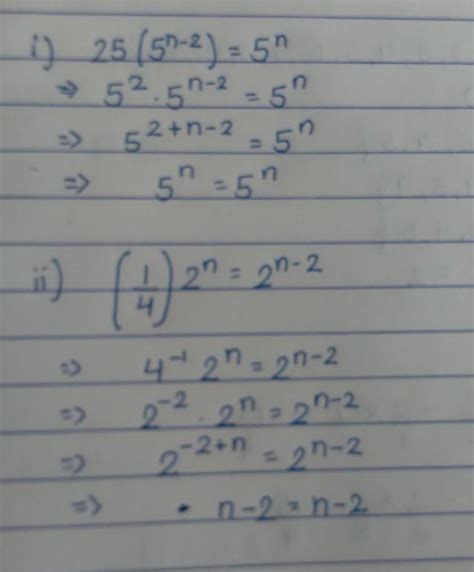 i) 25(5^{n-2}) = 5^n
⇒ 5^2 · 5^{n-2} = 5^n
⇒ 5^{2+n-2} = 5^n
⇒ 5^n = 5^n
ii) (1/4) 2^n = 2^{n-2}
⇒ 4^{-1} 2^n = 2^{n-2}
⇒ 2^{-2} · 2^n = 2^{n-2}
⇒ 2^{-2+n} = 2^{n-2}
⇒ · n-2 = n-2